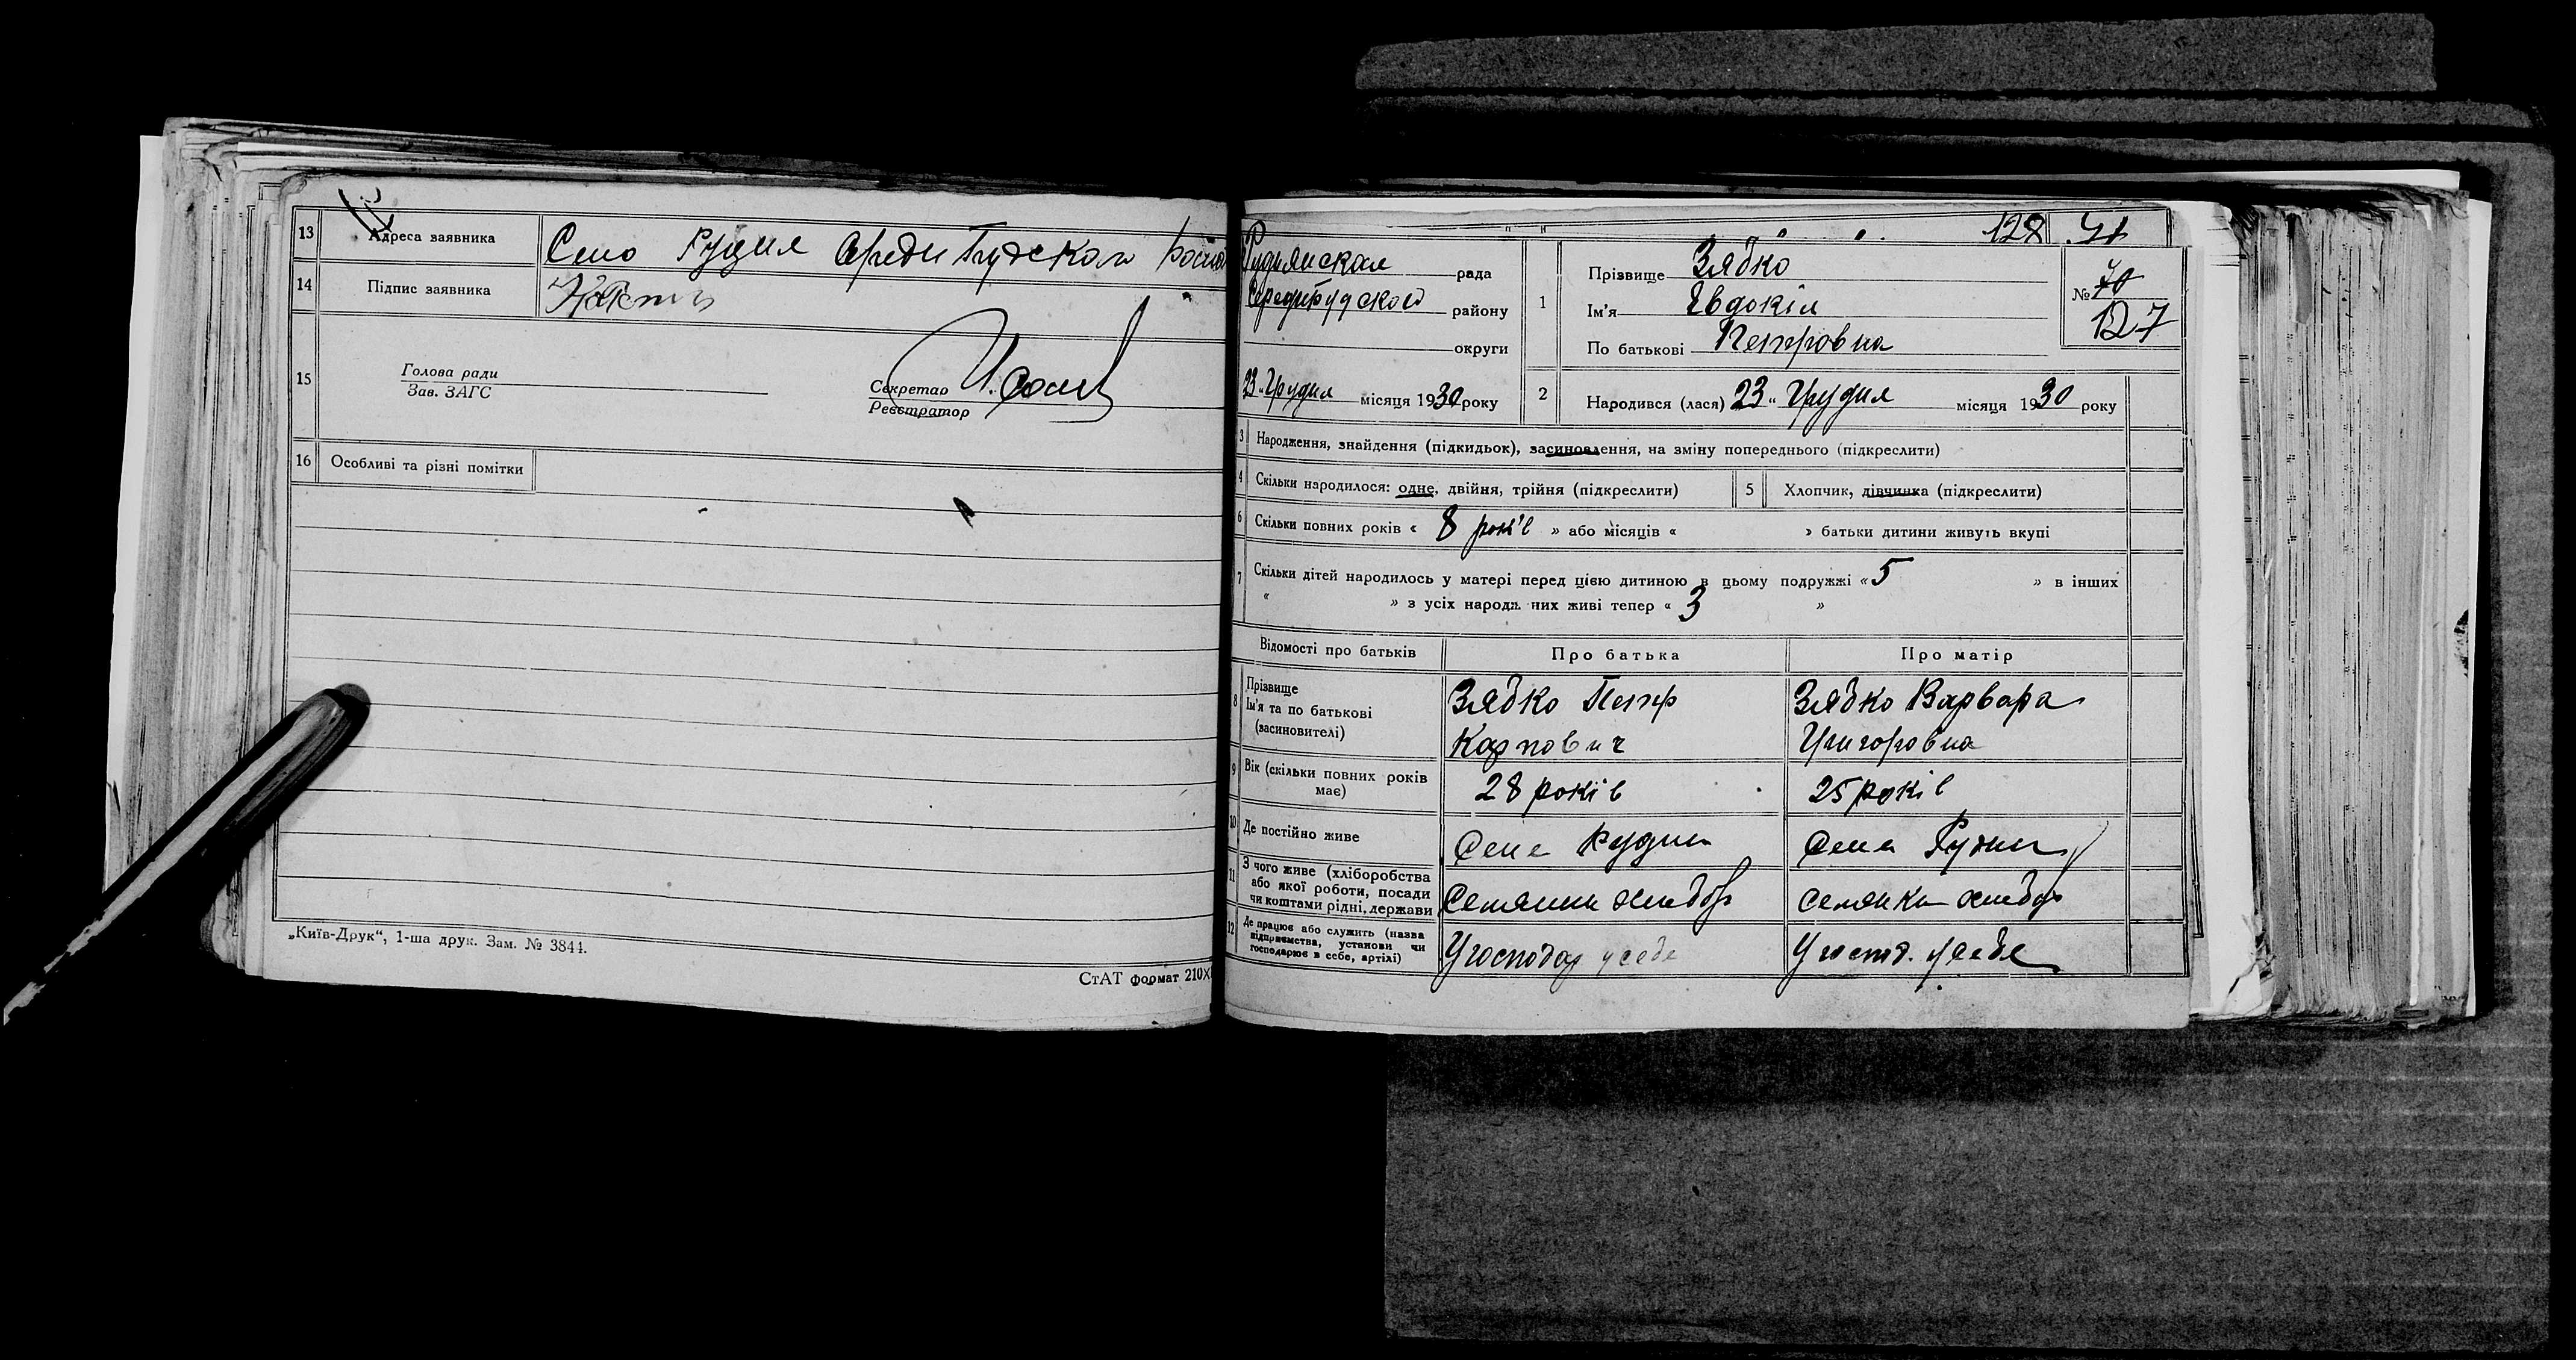 13 Адреса заявника Село Рудня Середибудского
14 Підпис заявника
15 Голова ради
Зав. ЗАГС
Секретар
Реєстратор
16 Особливі та різні помітки
„Київ-Друк“, 1-ша друк. Зам. № 3844.
СтАТ формат 210X
128 71
Руднянская рада
Середибудского району
округи
23 „Грудня місяця 1930 року
1 Прізвище Зябко
Ім'я Євдокія
По батькові Петровна
№ 70
127
2 Народився (лася) 23 „ Грудня місяця 1930 року
3 Народження, знайдення (підкидьок), засиновлення, на зміну попереднього (підкреслити)
4 Скільки народилося: одне, двійня, трійня (підкреслити) 5 Хлопчик, дівчинка (підкреслити)
6 Скільки повних років « 8 років » або місяців « » батьки дитини живуть вкупі
7 Скільки дітей народилось у матері перед цією дитиною в цьому подружжі « 5 » в інших
« » з усіх народжених живі тепер « 3 »
Відомості про батьків Про батька Про матір
8 Прізвище
Ім'я та по батькові
(засиновителі)
Зябко Петр
Карпович
Зябко Варвара
Григоровна
9 Вік (скільки повних років
має)
28 років 25 років
10 Де постійно живе Село Рудня Село Рудня
11 З чого живе (хліборобства
або якої роботи, посади
чи коштами рідні, держави
Селянин хлибор Селянка хлибор
12 Де працює або служить (назва
підприємства, установи чи
господарює в себе, артілі)
У господар у себе У господ. у себе